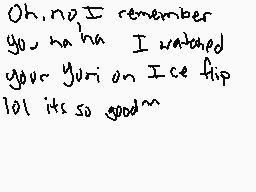 Oh, no, I remember
you ha'ha I watched
your Yuri on Ice flip
lol its so good^^